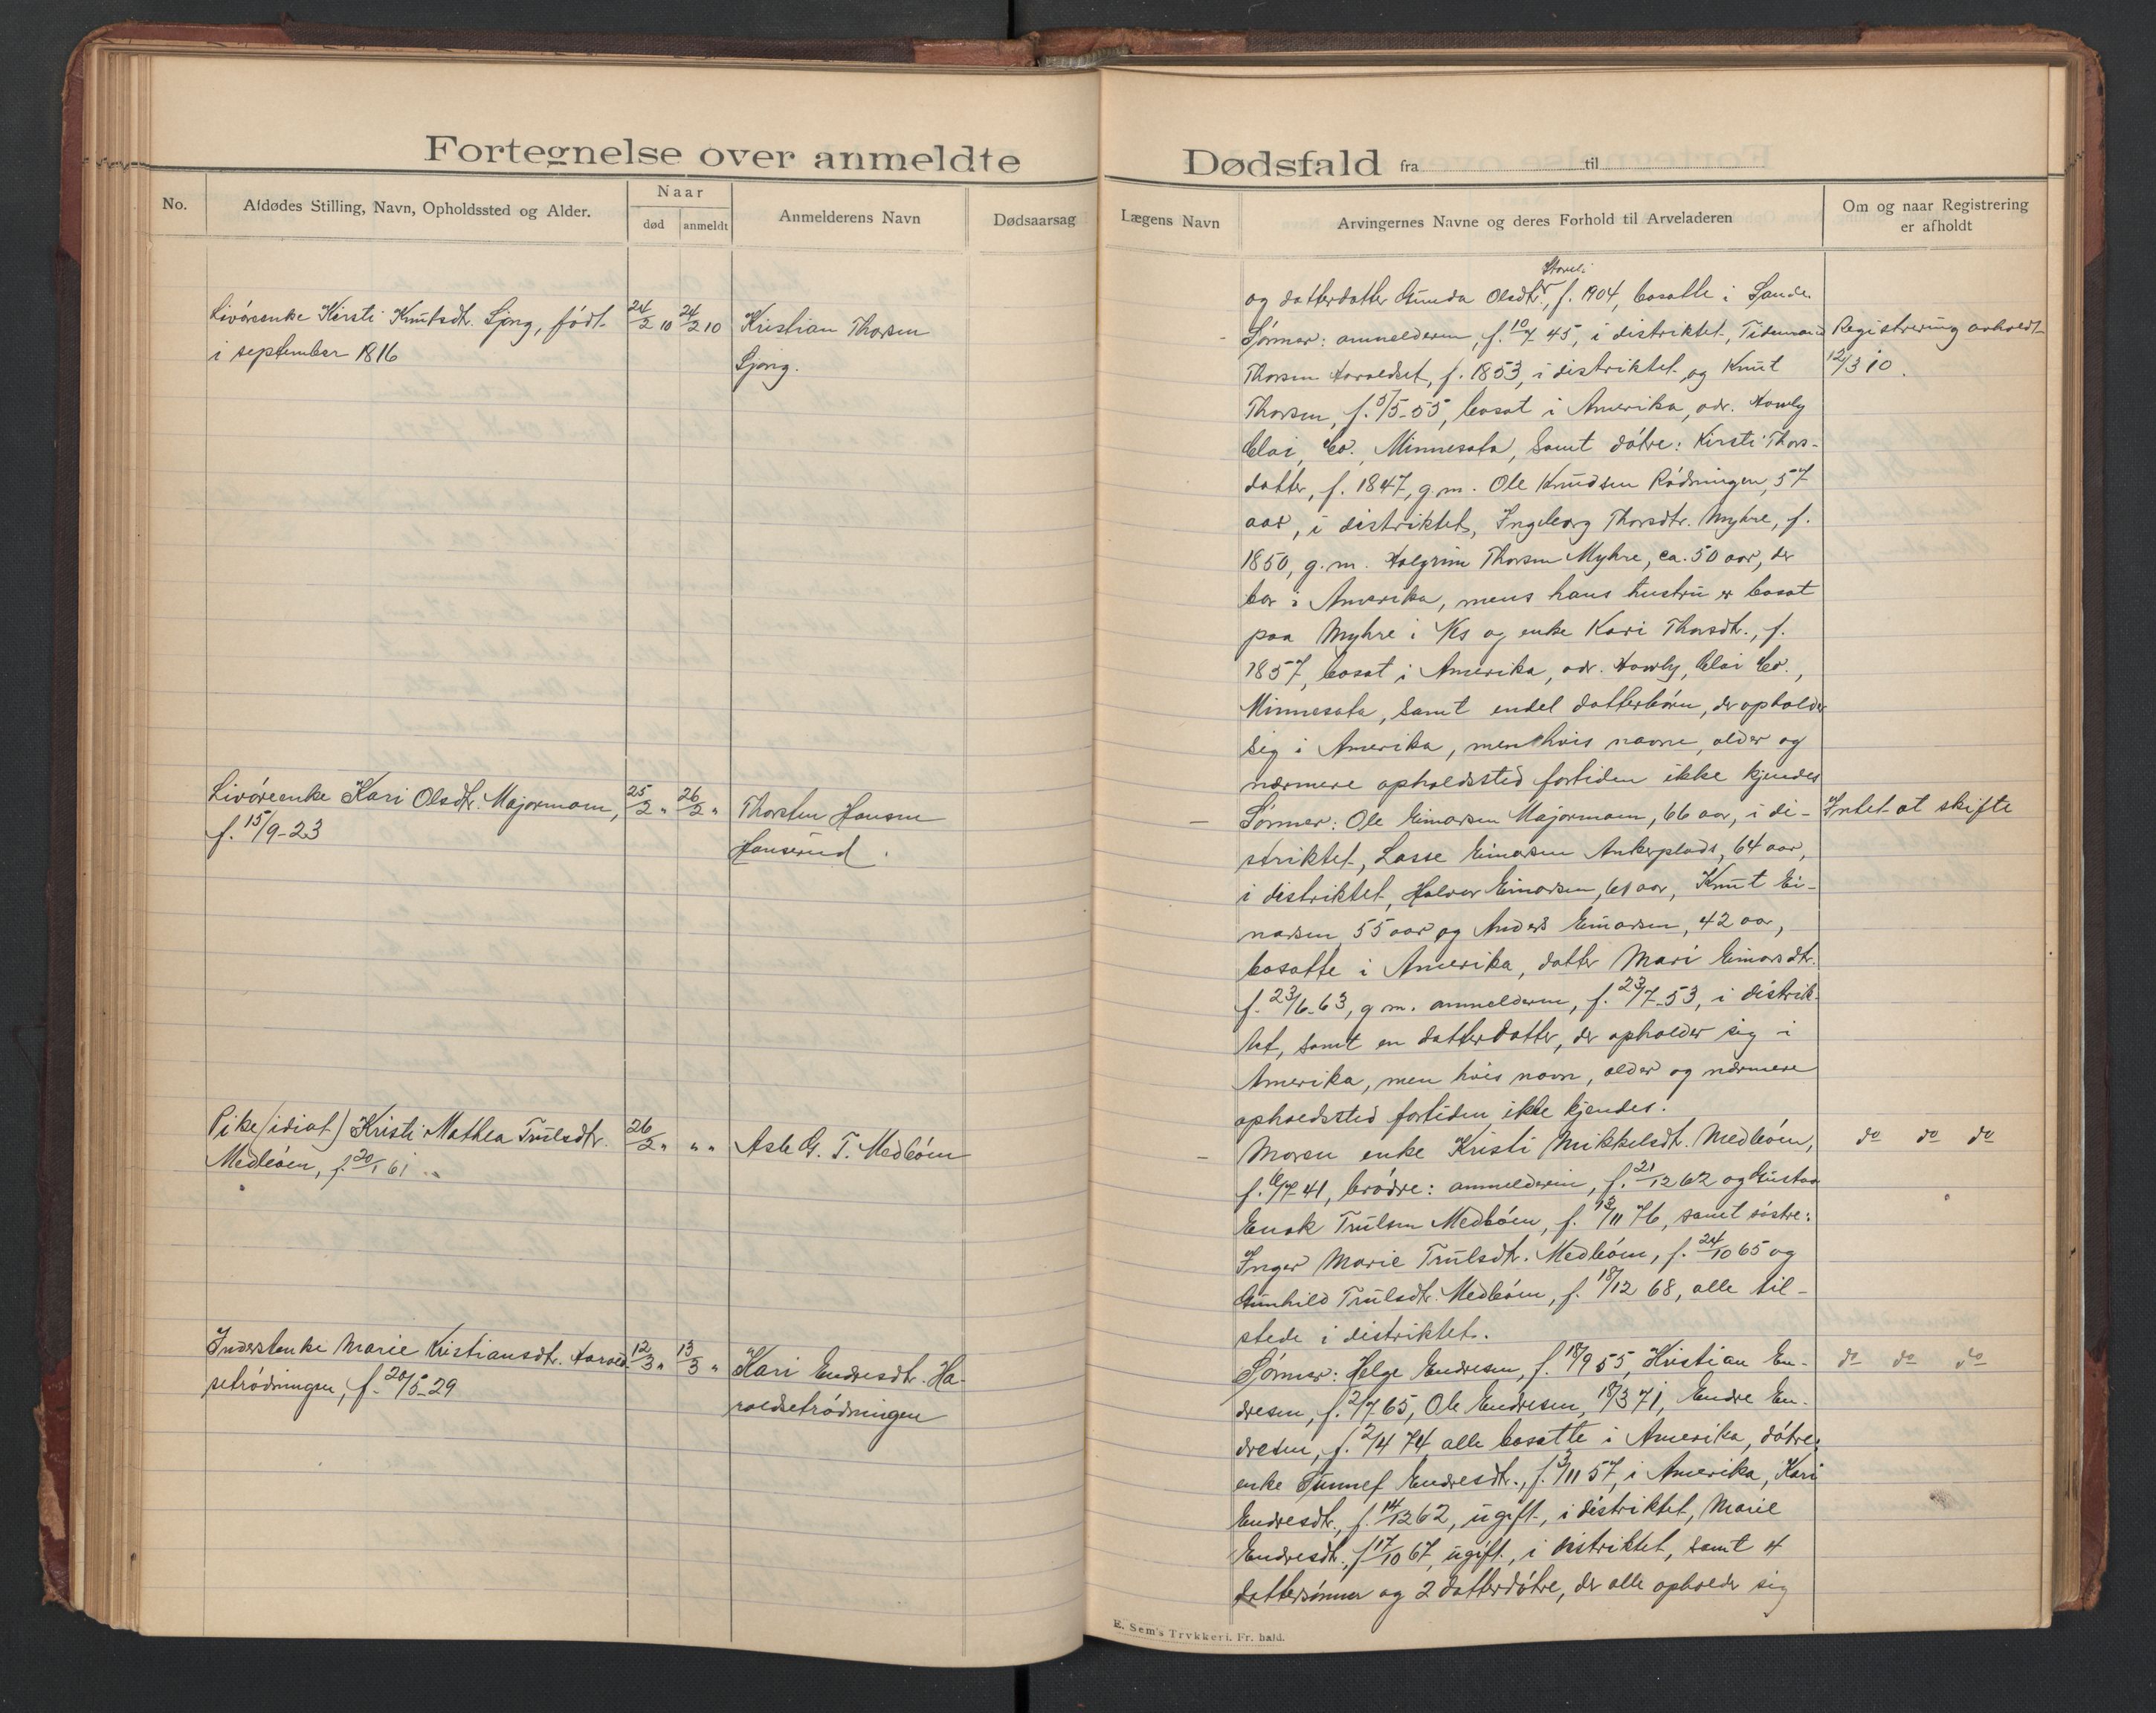 Fortegnelse over anmeldte
No.
Afdødes Stilling, Navn, Opholdssted og Alder.
Naar
død
anmeldt
Anmelderens Navn
Dødsaarsag
Livøreenke Kirsti Knutsdtr. Ljøng, født
i september 1816
24/2 10
24/2 10
Kristian Thorsen
Livøreenke Kari Olsdtr. Majormom,
f. 15/9-23
25/2 "
26/2 "
Thorsten Hansen
Hanserud.
Pike (idiot) Kristi Mathea Trulsdtr.
Medbøen, f. 20/1 61
26/2 "
" "
Asle G. T. Medbøen
Inderstenke Marie Kristiansdtr. Harold-
setrødningen, f. 20/5-29
12/3 "
13/3 "
Kari Endresdtr. Ha-
roldsetrødningen
Dødsfald fra til
Lægens Navn
Arvingernes Navne og deres Forhold til Arveladeren
Om og naar Registrering
er afholdt
og datterdatter Gunda Olsdtr., f. 1904, bosatte i Sande.
Sønner: anmelderen, f. 10/4 45, i distriktet, Tidemand
Thorsen Haroldset, f. 1853, i distriktet og Knut
Thorsen, f. 5/5-55, bosat i Amerika, adr. Hawly
Clai, Co. Minnesota, samt døtre: Kirsti Thors-
datter, f. 1847, g. m. Ole Knudsen Rødningen, 57
aar, i distriktet, Ingeborg Thorsdtr. Myhre, f.
1850, g. m. Holgrim Thorsen Myhre, ca. 50 aar, der
bor i Amerika, mens hans hustru er bosat
paa Myhre i Nes og enke Kari Thorsdtr., f.
1857, bosat i Amerika, adr. Hawly, Clai Co.,
Minnesota, samt endel datterbørn, der opholder
sig i Amerika, men hvis navne, alder og
nærmere opholdssted fortiden ikke kjendes
Registrering avholdt
12/3 10.
– Sønner: Ole Einarsen Majormom, 66 aar, i di-
striktet, Lasse Einarsen Ankerplads, 64 aar,
i distriktet, Halvor Einarsen, 61 aar, Knut Ei-
narsen 55 aar og Anders Einarsen, 42 aar,
bosatte i Amerika, datter Mari Einarsdtr.
f. 23/6-63, g m. anmelderen, f. 23/7-53, i distrik-
tet, samt en datterdatter, der opholder sig i
Amerika, men hvis navn, alder og nærmere
opholdssted fortiden ikke kjendes.
Intet at skifte
– Moren enke Kristi Mikkelsdtr. Medbøen,
f. 6/7-41, brødre: anmelderen, f. 21/12 62 og Gustav
Enok Trulsen Medbøen, f. 13/11 76, samt søstre:
Inger Marie Trulsdtr. Medbøen, f. 24/10 65 og
Gunhild Trulsdtr. Medbøen, f. 18/12 68, alle til-
stede i distriktet.
do do do
Sønner: Helge Endresen, f. 18/9 55, Kristian En-
dresen, f. 2/7 65, Ole Endresen, 18/3 71, Endre En-
dresen, f. 2/4 74 alle bosatte i Amerika, døtre:
enke Gunnef Endresdtr., f. 3/11 57, i Amerika, Kari
Endresdtr., f. 14/12 62, ugift, i distriktet, Marie
Endresdtr., f 17/10 67, ugift, i distriktet, samt 4
dattersønner og 2 datterdøtre, der alle opholder sig
do do do
E. Sem's Trykkeri. Fr. hald.